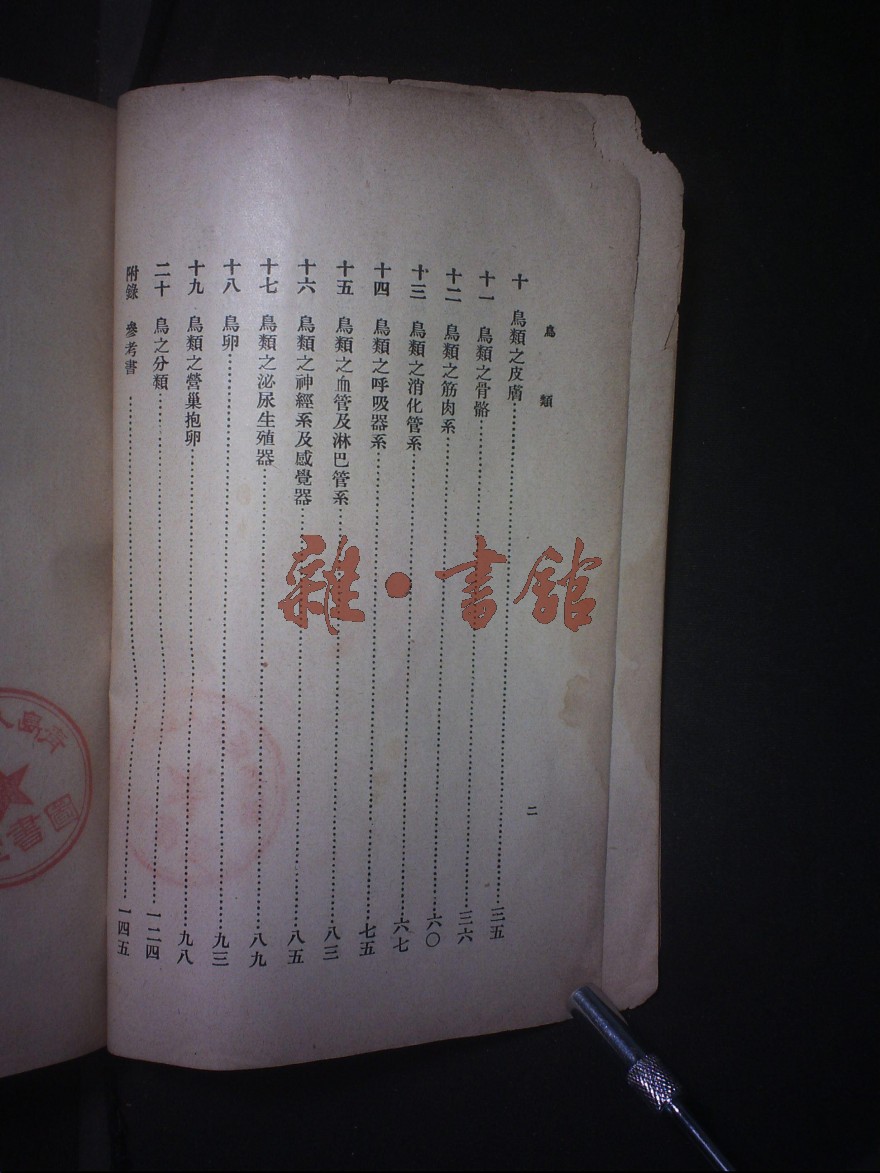 鳥類
二
十 鳥類之皮膚 三五
十一 鳥類之骨骼 三六
十二 鳥類之筋肉系 六〇
十三 鳥類之消化管系 六七
十四 鳥類之呼吸器系 七五
十五 鳥類之血管及淋巴管系 八三
十六 鳥類之神經系及感覺器 八五
十七 鳥類之泌尿生殖器 八九
十八 鳥卵 九三
十九 鳥類之營巢抱卵 九八
二十 鳥之分類 一二四
附錄 參考書 一四五
雜·書館